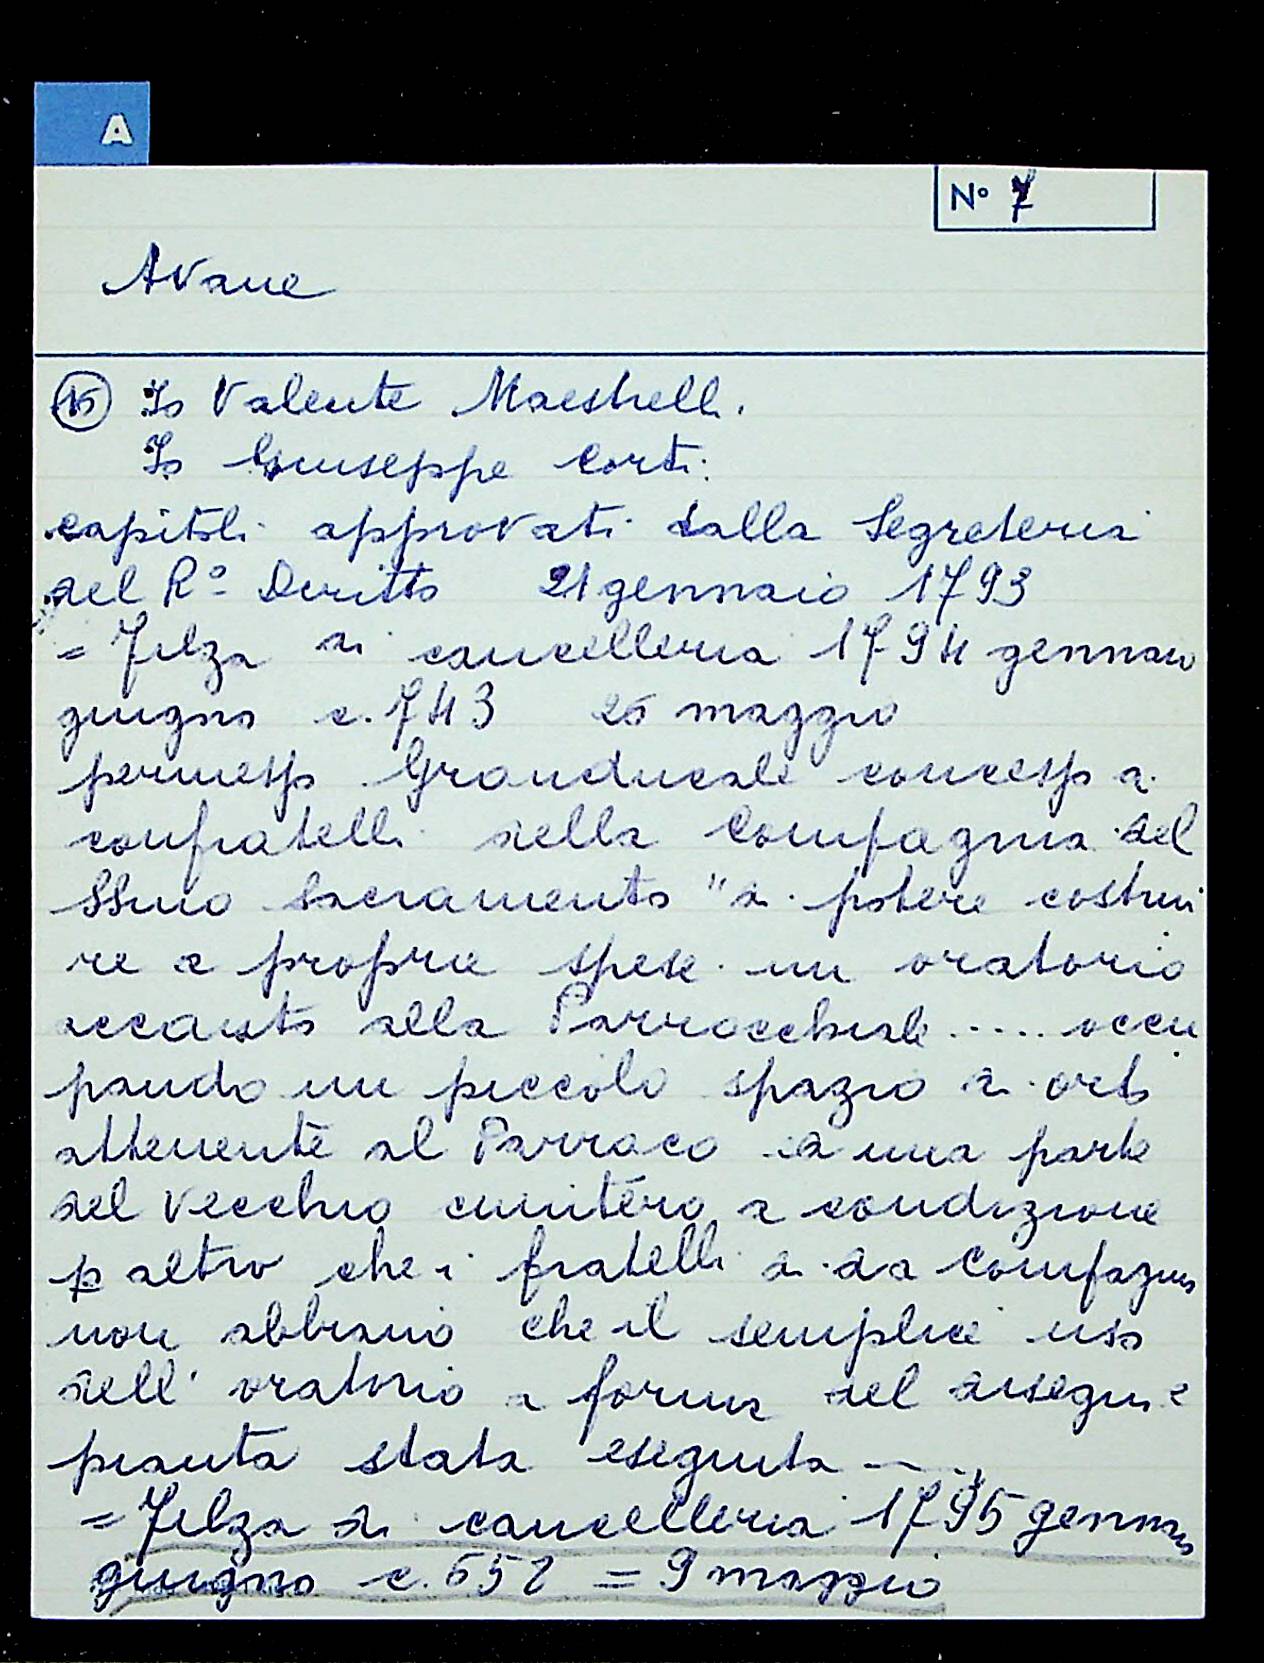 A
N° 7
Avane
15 Io Valente Maestrelli.
Io Giuseppe Corti:
capitoli approvati dalla Segreteria
del R° Diritto 21 gennaio 1793
= Filza di cancelleria 1794 gennaio
giugno c. 743 26 maggio
permesso Granducale concesso a
confratelli della Compagnia del
SSmo Sacramento "di potere costrui
re a proprie spese un oratorio
accanto alla Parrocchiale ..... occu
pando un piccolo spazio di orto
attenente al Parroco e a una parte
del vecchio cimitero a condizione
p altro che i fratelli di da Compagnia
non abbiano che il semplice uso
dell'oratorio a forma del disegno e
pianta stata eseguita
= Filza di cancelleria 1795 gennaio
giugno c. 652 = 9 maggio